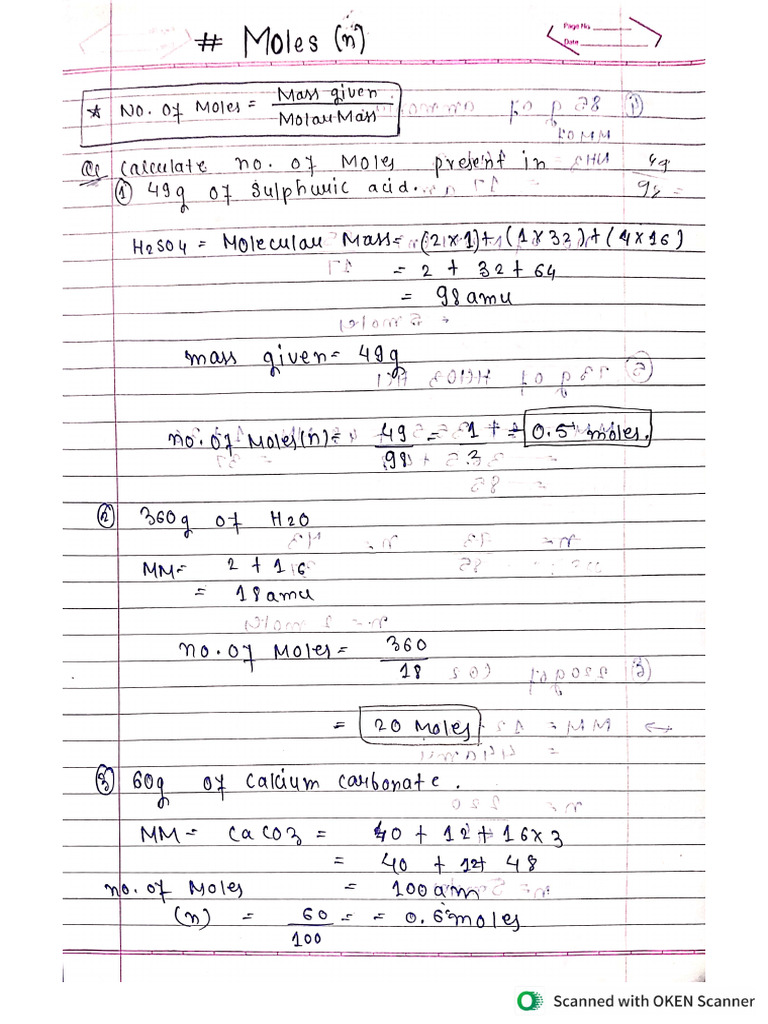 # Moles (n)
Page No.
Date
* No. of Moles = Mass given
Molar Mass
Q1 Calculate no. of Moles present in
① 49g of Sulphuric acid.
H2SO4 = Molecular Mass = (2×1)+(1×32)+(4×16)
= 2 + 32 + 64
= 98amu
mass given = 49g
no. of Moles(n) = 49 = 1 = 0.5 moles.
98
② 360g of H2O
MM = 2 + 16
= 18amu
no. of Moles = 360
18
= 20 Moles
③ 60g of Calcium Carbonate.
MM = CaCO3 = 40 + 12 + 16×3
= 40 + 12+ 48
no. of Moles = 100am
(n) = 60 = = 0.6 moles
100
Scanned with OKEN Scanner